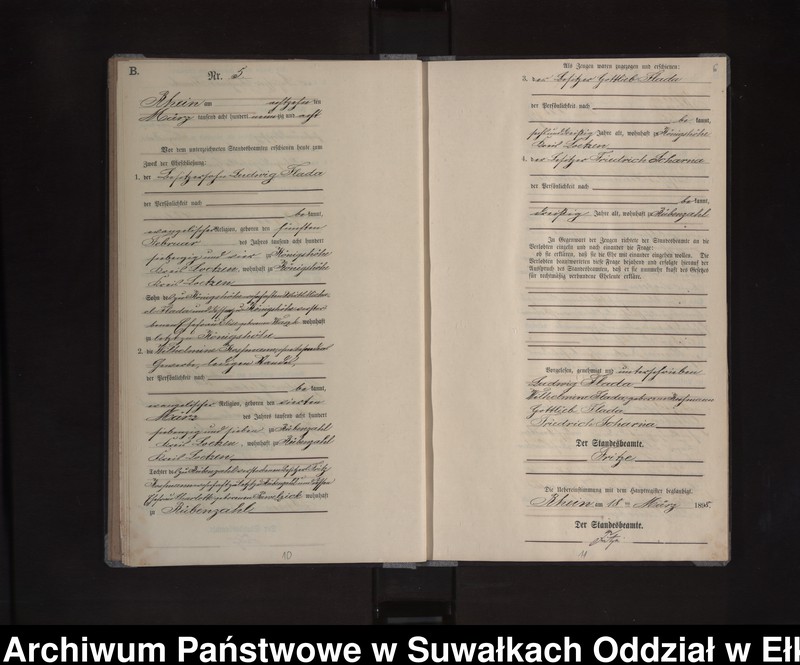 B.
Nr. 5.
Rhein am achtzehnten
März tausend acht hundert neunzig und acht
Vor dem unterzeichneten Standesbeamten erschienen heute zum
Zweck der Eheschließung:
1. der Besitzersohn Ludwig Flada
der Persönlichkeit nach
be kannt,
evangelischer Religion, geboren den fünften
Februar des Jahres tausend acht hundert
siebenzig und vier zu Königshöhe
Kreis Loetzen, wohnhaft zu Königshöhe
Kreis Loetzen
Sohn des zu Königshöhe
Flada und dessen zu Königshöhe
wohnhaft
zu Königshöhe
2. die Wilhelmine
der Persönlichkeit nach
be kannt,
evangelischer Religion, geboren den vierten
März des Jahres tausend acht hundert
siebenzig und sieben zu Rübenzahl
Kreis Loetzen, wohnhaft zu Rübenzahl
Kreis Loetzen
Tochter des zu Rübenzahl
zu Rübenzahl und dessen
Ehefrau Charlotte geborenen wohnhaft
zu Rübenzahl
10
6
Als Zeugen waren zugezogen und erschienen:
3. der Besitzer Gottlieb Flada
der Persönlichkeit nach
be kannt,
Jahre alt, wohnhaft zu Königshöhe
Kreis Loetzen
4. der Besitzer Friedrich Scharna
der Persönlichkeit nach
be kannt,
dreißig Jahre alt, wohnhaft zu Rübenzahl
In Gegenwart der Zeugen richtete der Standesbeamte an die
Verlobten einzeln und nach einander die Frage:
ob sie erklären, daß sie die Ehe mit einander eingehen wollen. Die
Verlobten beantworteten diese Frage bejahend und erfolgte hierauf der
Ausspruch des Standesbeamten, daß er sie nunmehr kraft des Gesetzes
für rechtmäßig verbundene Eheleute erkläre.
Vorgelesen, genehmigt und unterschrieben
Ludwig Flada
Wilhelmine Flada geborene
Gottlieb Flada
Friedrich Scharna
Der Standesbeamte.
Fritze
Die Uebereinstimmung mit dem Hauptregister beglaubigt.
Rhein am 18 ten März 1898
Der Standesbeamte.
Fritze
11
Archiwum Państwowe w Suwałkach Oddział w Ełk